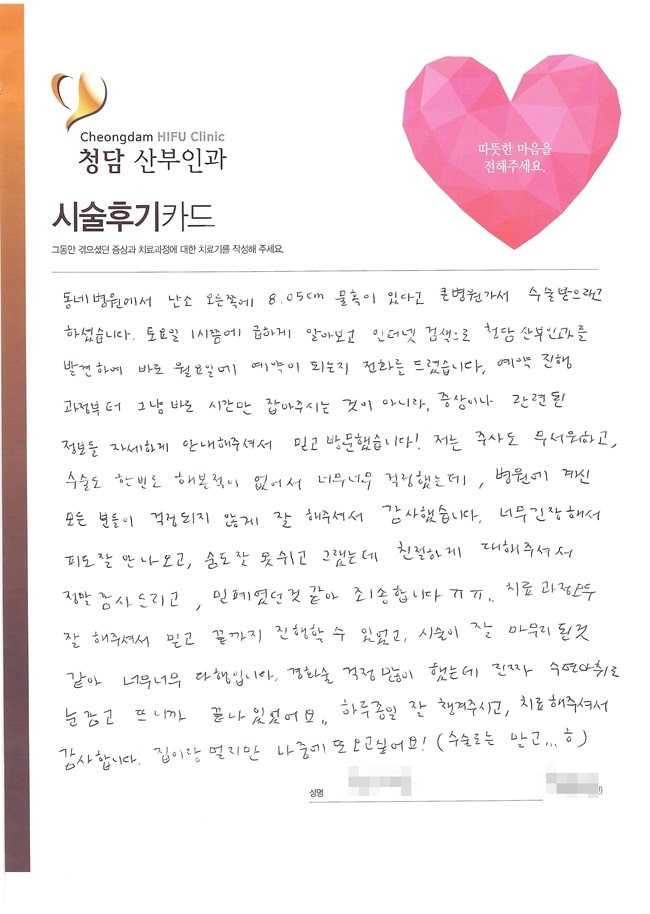 Cheongdam HIFU Clinic
청담 산부인과
따뜻한 마음을
전해주세요.
시술후기카드
그동안 겪으셨던 증상과 치료과정에 대한 치료기를 작성해 주세요.
동네병원에서 난소 오른쪽에 8.05cm 물혹이 있다고 큰병원가서 수술받으라고
하셨습니다. 토요일 1시쯤에 급하게 알아보고 인터넷 검색으로 청담산부인과를
발견하여 바로 월요일에 예약이 되는지 전화를 드렸습니다. 예약 진행
과정부터 그냥 바로 시간만 잡아주시는 것이 아니라, 증상이나 관련된
정보들 자세하게 안내해주셔서 믿고 방문했습니다! 저는 주사도 무서워하고,
수술도 한번도 해본적이 없어서 너무너무 걱정했는데, 병원에 계신
모든 분들이 걱정되지 않게 잘 해주셔서 감사했습니다. 너무 긴장해서
피도 잘 안 나오고, 숨도 잘 못쉬고 그랬는데 친절하게 대해주셔서
정말 감사드리고, 민폐였던것 같아 죄송합니다 ㅠㅠ.. 치료 과정모두
잘 해주셔서 믿고 끝까지 진행할 수 있었고, 시술이 잘 마무리 된것
같아 너무너무 다행입니다. 경화술 걱정 많이 했는데 진짜 수면마취로
눈감고 뜨니까 끝나 있었어요.. 하루종일 잘 챙겨주시고, 치료해주셔서
감사합니다. 집이랑 멀지만 나중에 또 오고싶어요! (수술로는 말고...ㅎ)
성명